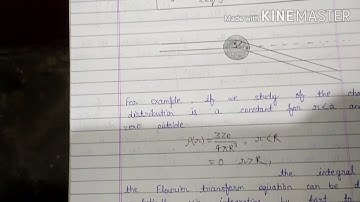 Made with KINEMASTER
3Z
For example, if we study of the cha
distribution is a constant for r<a an
zero outside.
ρ(r) = 3Ze / 4πR³, r<R
= 0 r>R,
the integral
the Flourier transform equation can be d
integration by part to